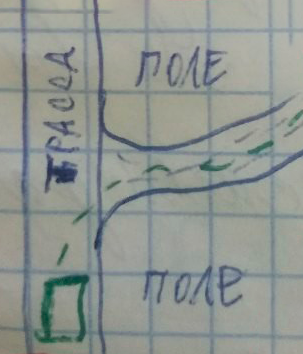 ТРАССА
ПОЛЕ
ПОЛЕ